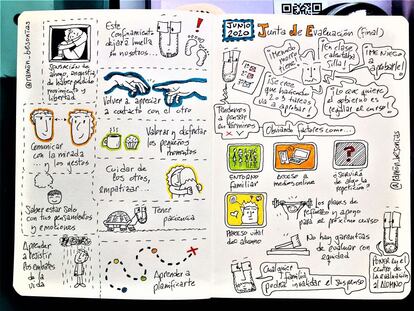 @ramon_besonias
SENSACIÓN DE
AHOGO, ANGUSTIA,
DE HABER PERDIDO
MOVIMIENTO Y
LIBERTAD
Este
confinamiento
dejará huella
en nosotros...
Volver a apreciar
a contacto con el otro
Comunicar
con la mirada
y los gestos
Valorar y disfrutar
los pequeños
momentos
Cuidar de
los otros,
empatizar
Saber estar solo
con tus pensamientos
y emociones
Tener
paciencia
Aprender
a resistir
los embates
de la
vida
Aprender a
planificarte
JUNIO
2020
Junta de Evaluación (final)
¡Menudo
morro
tiene!
¡En clase
calentaba
silla!
¡Me niego
a aprobarle!
¡Se cree
que haciendo
2 o 3 tareas
va a aprobar!
¡Lo que quiere
el gobierno es
regalar el curso!
Tendemos
a pensar
en términos
Obviando factores como...
ENTORNO
FAMILIAR
ACCESO a
medios online
¿SERVIRÁ
de algo la
repetición?
PROCESO vital
del alumno
Los planes de
refuerzo y apoyo
para el próximo curso
No hay garantías
de evaluar con
equidad
Cualquier
familia
podrá invalidar el suspenso
PONER en el
centro de
la evaluación
al ALUMNO
@ramon_besonias